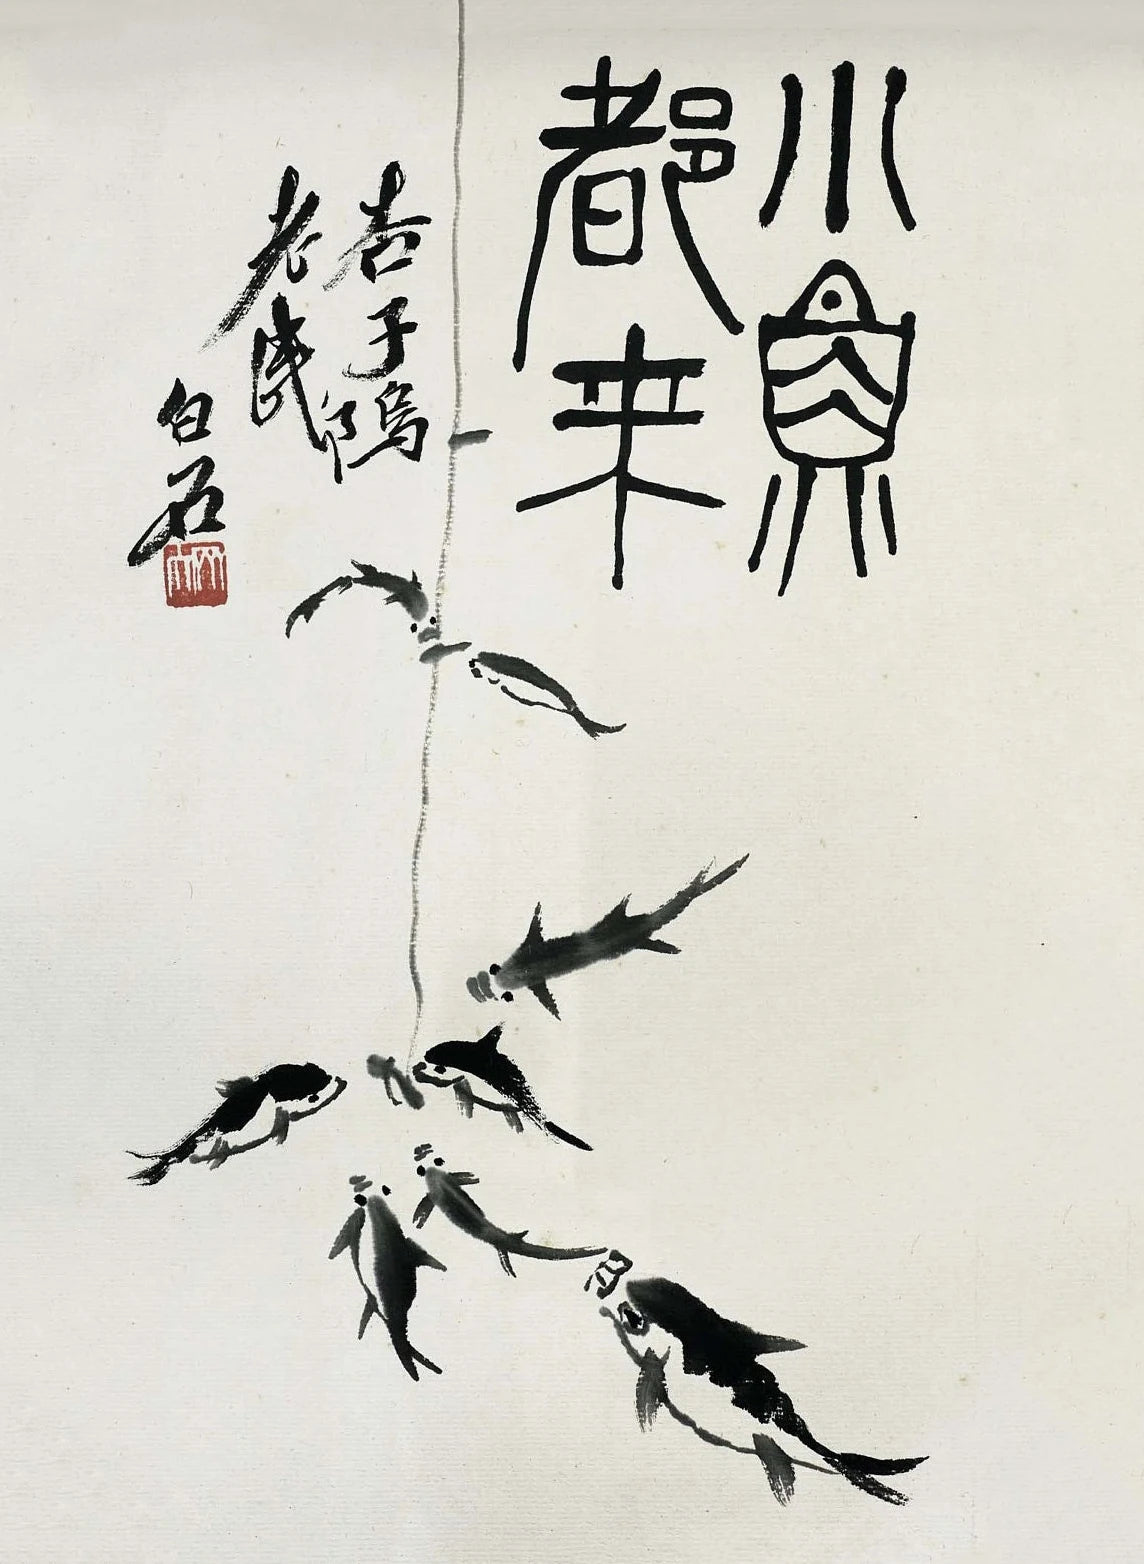 小魚
都來
杏子隖
老民
白石